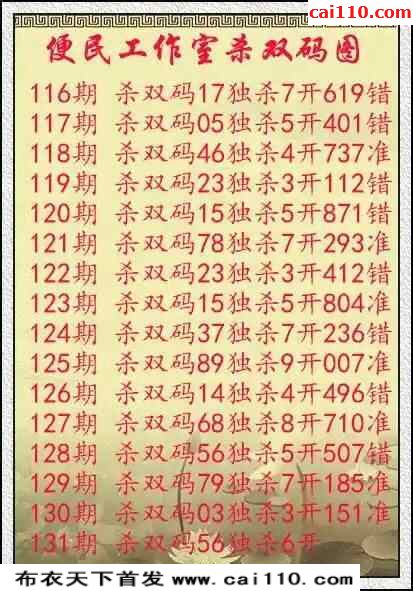 cai110.com
便民工作室杀双码图
116期 杀双码17独杀7开619错
117期 杀双码05独杀5开401错
118期 杀双码46独杀4开737准
119期 杀双码23独杀3开112错
120期 杀双码15独杀5开871错
121期 杀双码78独杀7开293准
122期 杀双码23独杀3开412错
123期 杀双码15独杀5开804准
124期 杀双码37独杀7开236错
125期 杀双码89独杀9开007准
126期 杀双码14独杀4开496错
127期 杀双码68独杀8开710准
128期 杀双码56独杀5开507错
129期 杀双码79独杀7开185准
130期 杀双码03独杀3开151准
131期 杀双码56独杀6开
布衣天下首发 www.cai110.com